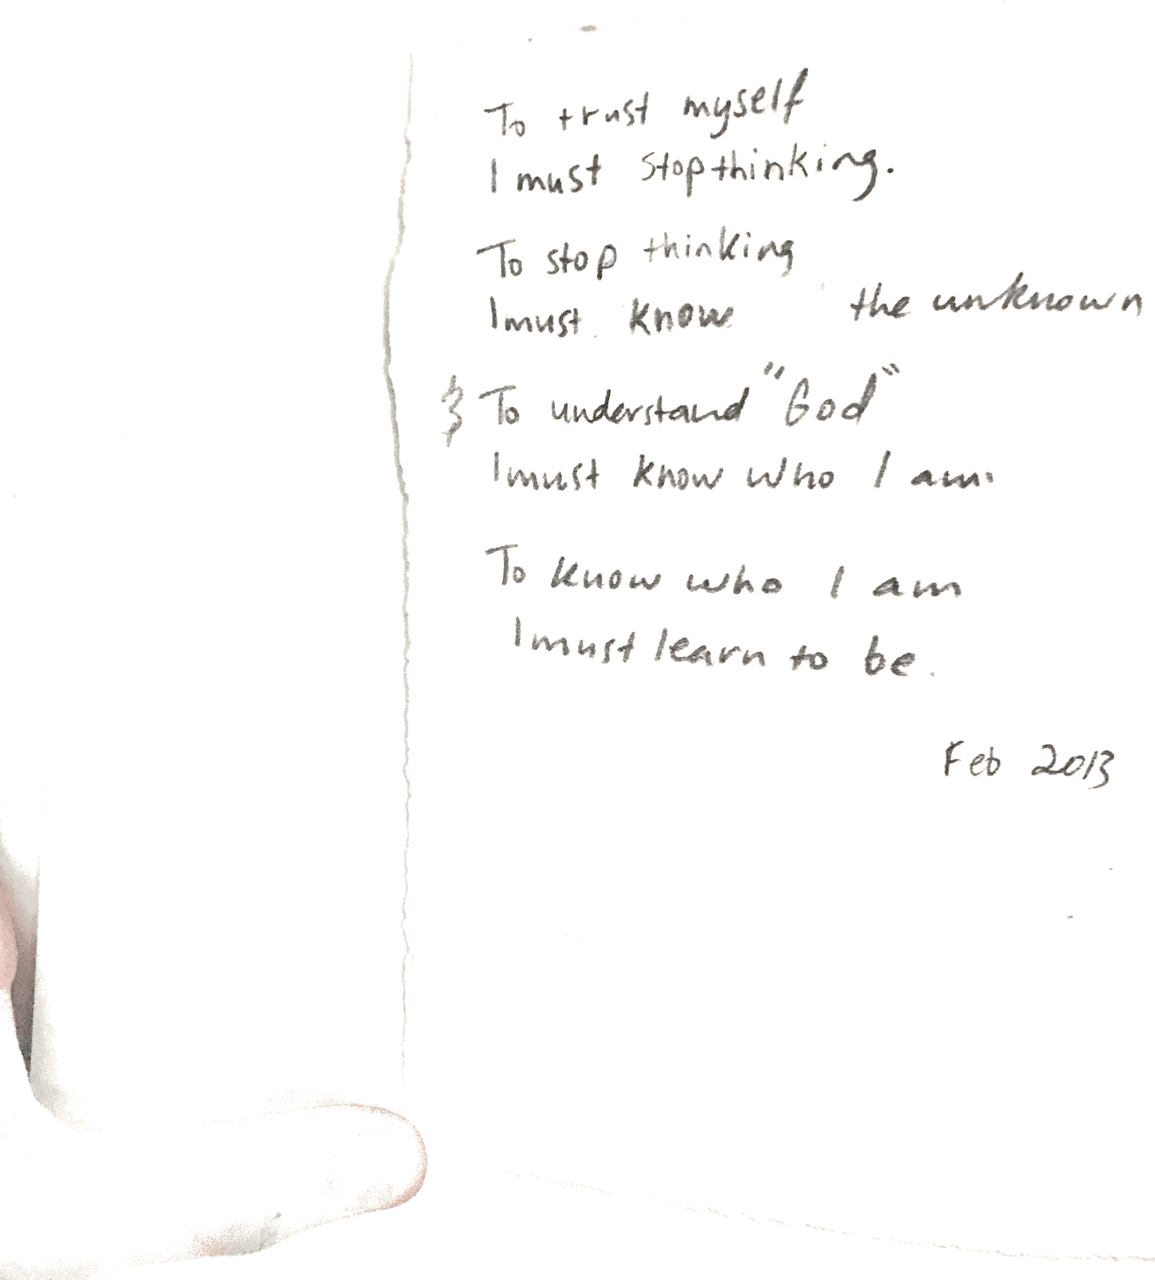 To trust myself
I must stop thinking.
To stop thinking
I must know the unknown
& To understand "God"
I must know who I am.
To know who I am
I must learn to be.
Feb 2013